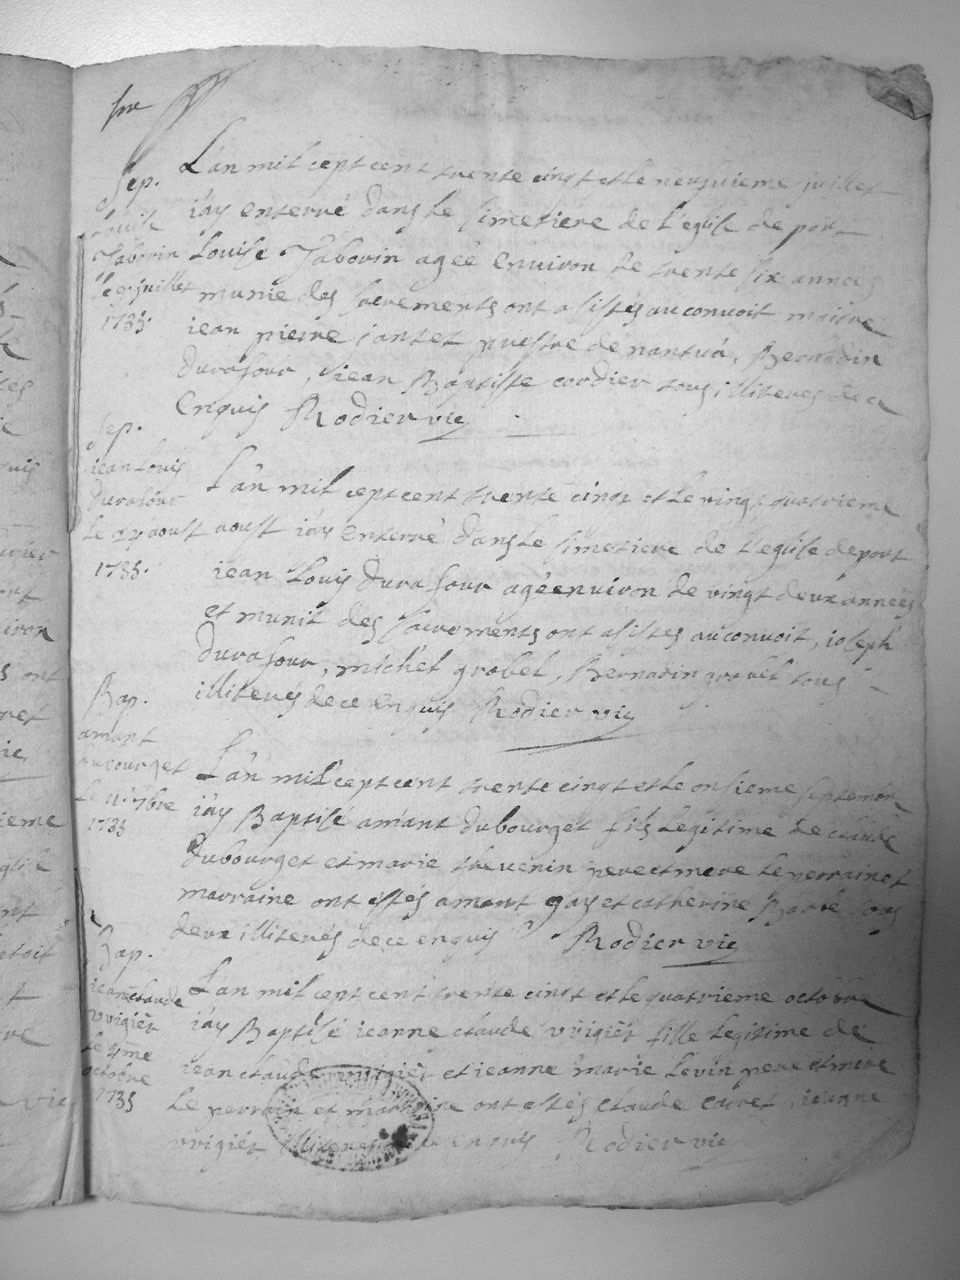 Sep.
Louise
Taborin
le 9e juillet
1735.
L'an mil cept cent trente cinqt et le neufuieme juillet
iay enterré dans le simetiere de l'eglise de port
Louise Taborin agée enuiron de trente six années
munie des sacrements ont asistés au conuoit maitre
iean pierre iantet prestre de nantua, Bernadin
durafour, iean Baptiste cordier tous illiterés de ce
enquis Rodier vic
Sep.
iean Louis
durafour
le 24 aoust
1735.
L'an mil cept cent trente cinqt et le vingt quatrieme
aoust iay enterré dans le simetiere de l'eglise de port
iean Louis durafour agée enuiron de vingt deux années
et munit des sacrements ont asistés au conuoit, ioseph
durafour, michel grobel, Bernadin grobel tous
illiterés de ce enquis Rodier vic
Bap.
amant
dubourget
le 11e 7bre
1735
L'an mil cept cent trente cinqt et le onsieme septembre
iay Baptisé amant dubourget fils legitime de claude
dubourget et marie thevenin pere et mere le perrain et
marraine ont estés amant gay et catherine tous
deux illiterés de ce enquis Rodier vic
Bap.
ieane claude
vrigier
le 4me
octobre
1735
L'an mil cept cent trente cinqt et le quatrieme octobre
iay Baptisé ieanne claude vrigier fille legitime de
iean claude vrigier et ieanne marie Levin pere et mere
le perrain et marraine ont estés claude caret, ieanne
vrigier illiterés enquis Rodier vic